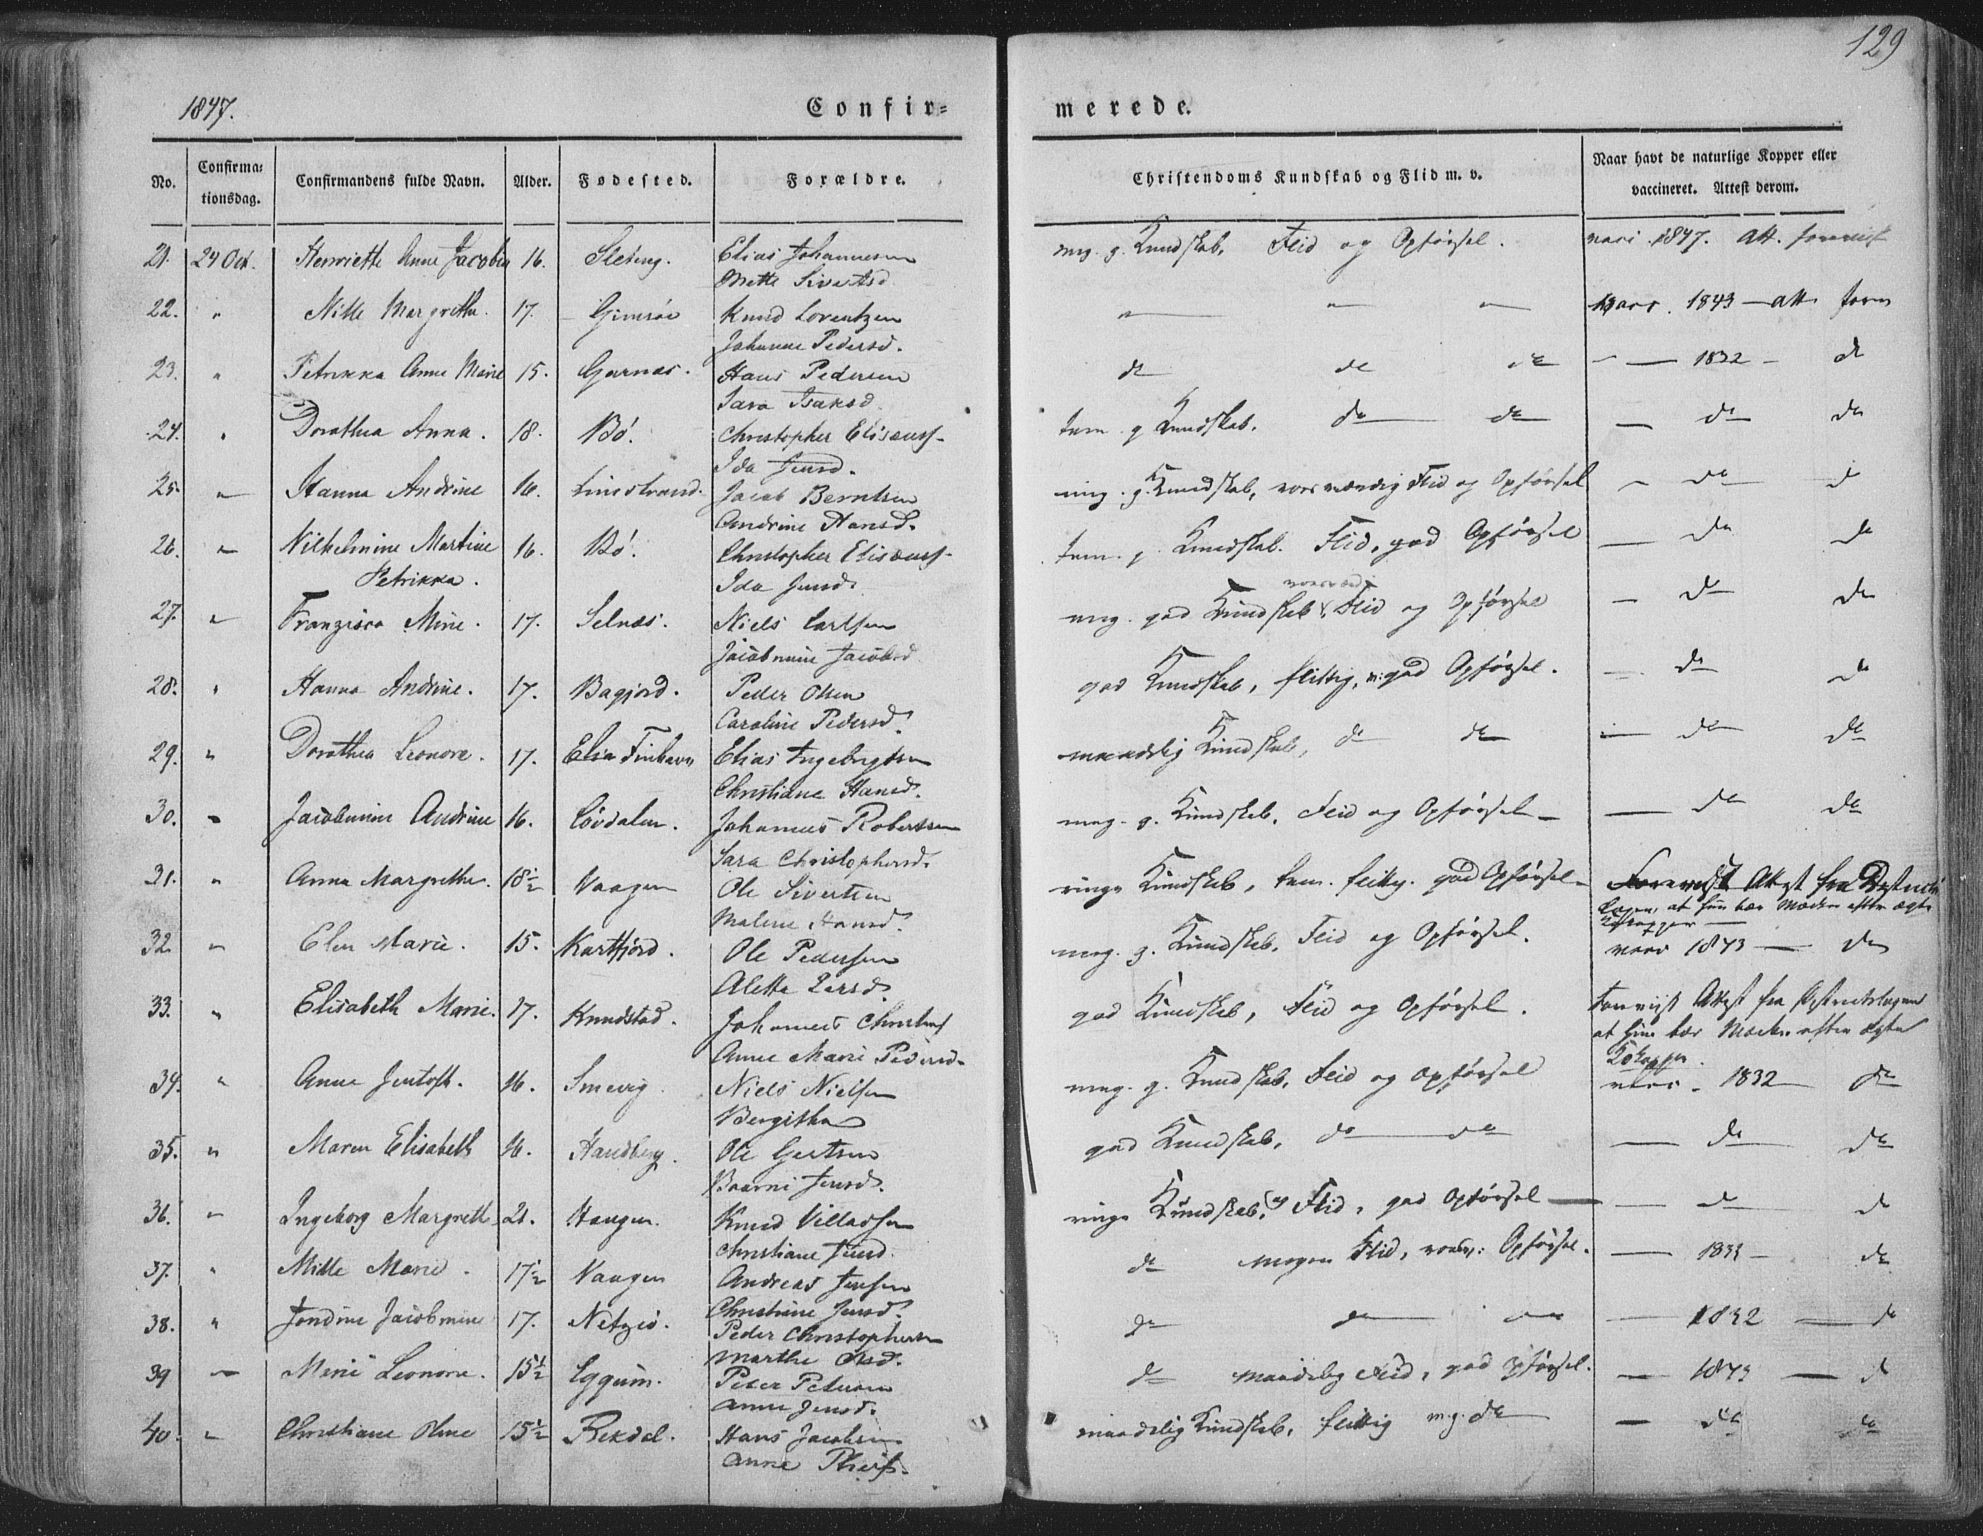 129
1847.
Confir=
merede.
No.
Confirma=
tionsdag.
Confirmandens fulde Navn.
Alder.
Fødested.
Forældre.
Christendoms Kundskab og Flid m. v.
Naar havt de naturlige Kopper eller
vaccineret. Attest derom.
21. 24 Oct. Henriette Anne Jacobea 16. Elias Johannesen meg. g. Kundskab, Flid og Opførsel. vacc. 1847. Att. forevist
Mette Sivertsd
22. " Margrethe. 17. Gimsøe Knud Lorentzen " " " vacc. 1843 — att. forev
Johanne Pedersd.
23. " Petrikka Anne Marie 15. Garnæs. Hans Pedersen do do do — 1832 — do
Sara Isaksd.
24. " Dorothea Anna. 18. Bø. Christopher Elisæuss. tem. g Kundskab. do do — do do
Ida Jensd.
25. " Hanna Andrine 16. Jacob Berntsen meg. g. Kundskab, Flid og Opførsel — do d
Andrine Hansd.
26. " Vilhelmine Martine 16. Bø. Christopher Elisæuss. tem. g. Kundskab. Flid, god Opførsel — do do
Petrikka. Ida Jensd.
27. " Franzisca Mine. 17. Selnæs. Niels Carlsen meg. god Kundskab, Flid og Opførsel — do do
Jacobmine Jacobsd
28. " Hanna Andrine. 17. Bagjord. Peder Olsen god Kundskab, flittig, god Opførsel. — do do
Caroline Pedersd.
29. " Dorothea Leonore. 17. Elias Ingebrigtsen maadelig Kundskab, do do — do do
Christiane Hansd.
30. " Jacobmine Andrine 16. Løvdalen. Johannes Robertsen meg. g. Kundskab, Flid og Opførsel — do do
Sara Christophersd.
31. " Anna Margrethe. 18½ Vaagen Ole Sivertsen ringe Kundskab, tem. flittig. god Opførsel — Forevist Attest fra
at hun bær Mærker efter ægte
Malene Hansd. Kopper
32. " Elen Marie. 15. Kartfjord. Ole Pedersen meg. g. Kundskab, Flid og Opførsel. vacc 1843 — do
Aletta Larsd.
33. " Elisabeth Marie. 17. Knudstad. Johannes god Kundskab, Flid og Opførsel. Forevist Attest fra
at hun bær Mærker efter ægte
Anne Marie Pedersd. Kopper.
34. " Anne Jentoft. 16. Smorig. Niels Nielsen meg. g. Kundskab, Flid og Opførsel vacc. 1832 — do
Bergitha
35. " Maren Elisabeth 16. Sandberg. Ole Gertsen god Kundskab, do do — do do
Jensd.
36. " Ingeborg Margreth 21. Haugen. Knud Villadsen ringe Kundskab, og Flid, god Opførsel — do d
Christiane Jensd.
37. " Mille Marie. 17½ Vaagen Andreas Jensen do megen Flid, Opførsel. — 1833 — do
Christine Jensd.
38. " Jondine Jacobmine 17. Peder Christophersen do do do — 1832 — d
Marthe Olsd.
39 — Mine Leonore. 15½ Eggum. Peter Petersen do maadelig Flid, god Opførsel. — 1843 — d
Anne Jensd.
40. " Christiane Oline 15½ Rekdal. Hans Jacobsen maadelig Kundskab, flittig m.g. do — do do
Anne